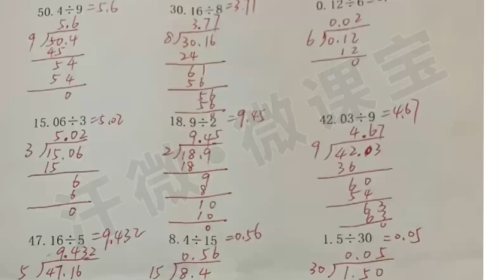 50.4÷9=5.6
30.16÷8=3.77
0.12÷6=
5.6
9 50.4
45
54
54
0
3.77
8 30.16
24
61
56
56
56
0
0.02
6 0.12
12
0
15.06÷3=5.02
18.9÷2=9.45
42.03÷9=4.67
5.02
3 15.06
15
6
6
0
9.45
2 18.9
18
9
8
10
10
0
4.67
9 42.03
36
60
54
63
63
0
47.16÷5=9.432
8.4÷15=0.56
1.5÷30=0.05
9.432
5 47.16
0.56
15 8.4
0.05
30 1.50
汗微·微课宝